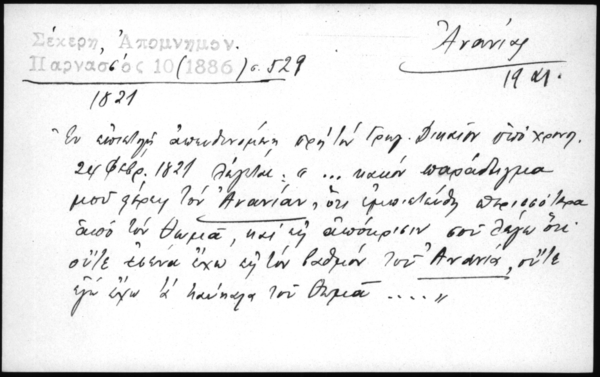 Σέκερη, Ἀπομνημον.
Παρνασσός 10 (1886) σ. 529
Ἀνανίας
19 αι.
1821
"Ἐν ἐπιστολῇ ἀπευθυνομένῃ πρὸς τὸν Γρηγ. Δικαῖον ὑπὸ χρον.
24 Φεβρ. 1821 λέγεται: « ... κακὸν παράδειγμα
μοῦ φέρεις τὸν Ἀνανίαν, ὅτι ἐμπιστεύθη περισσότερα
ἀπὸ τὸν Θωμᾶ, καὶ εἰς ἀπόκρισιν σοῦ λέγω ὅτι
οὔτε ἐσένα ἔχω εἰς τὸν βαθμὸν τοῦ Ἀνανία, οὔτε
ἐγὼ ἔχω τὰ τοῦ Θωμᾶ .... »